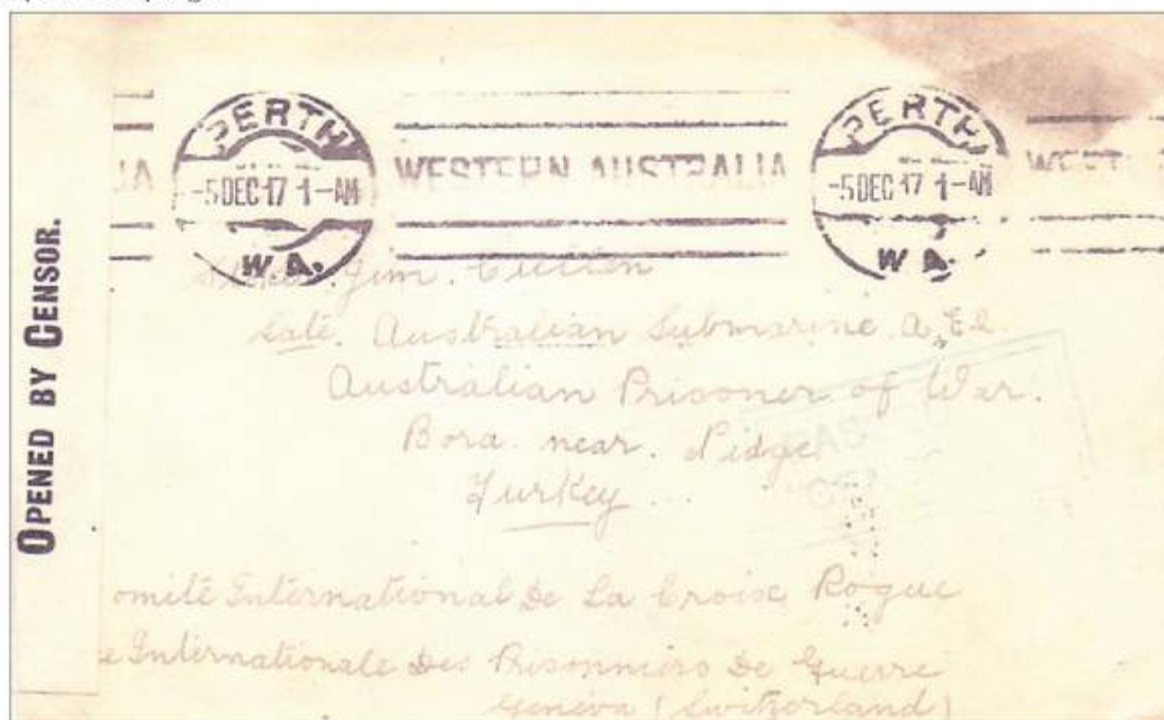 OPENED BY CENSOR.
PERTH
-5 DEC 17 1-AM
W.A.
WESTERN AUSTRALIA
PERTH
-5 DEC 17 1-AM
W.A.
Jim. Cullen
Late. Australian Submarine A.E2.
Australian Prisoner of War.
Bora. near. Nidge
Turkey
omité International De La Croix Rogue
e Internationale Des Prisonniers De Guerre
Geneva (Switzerland)